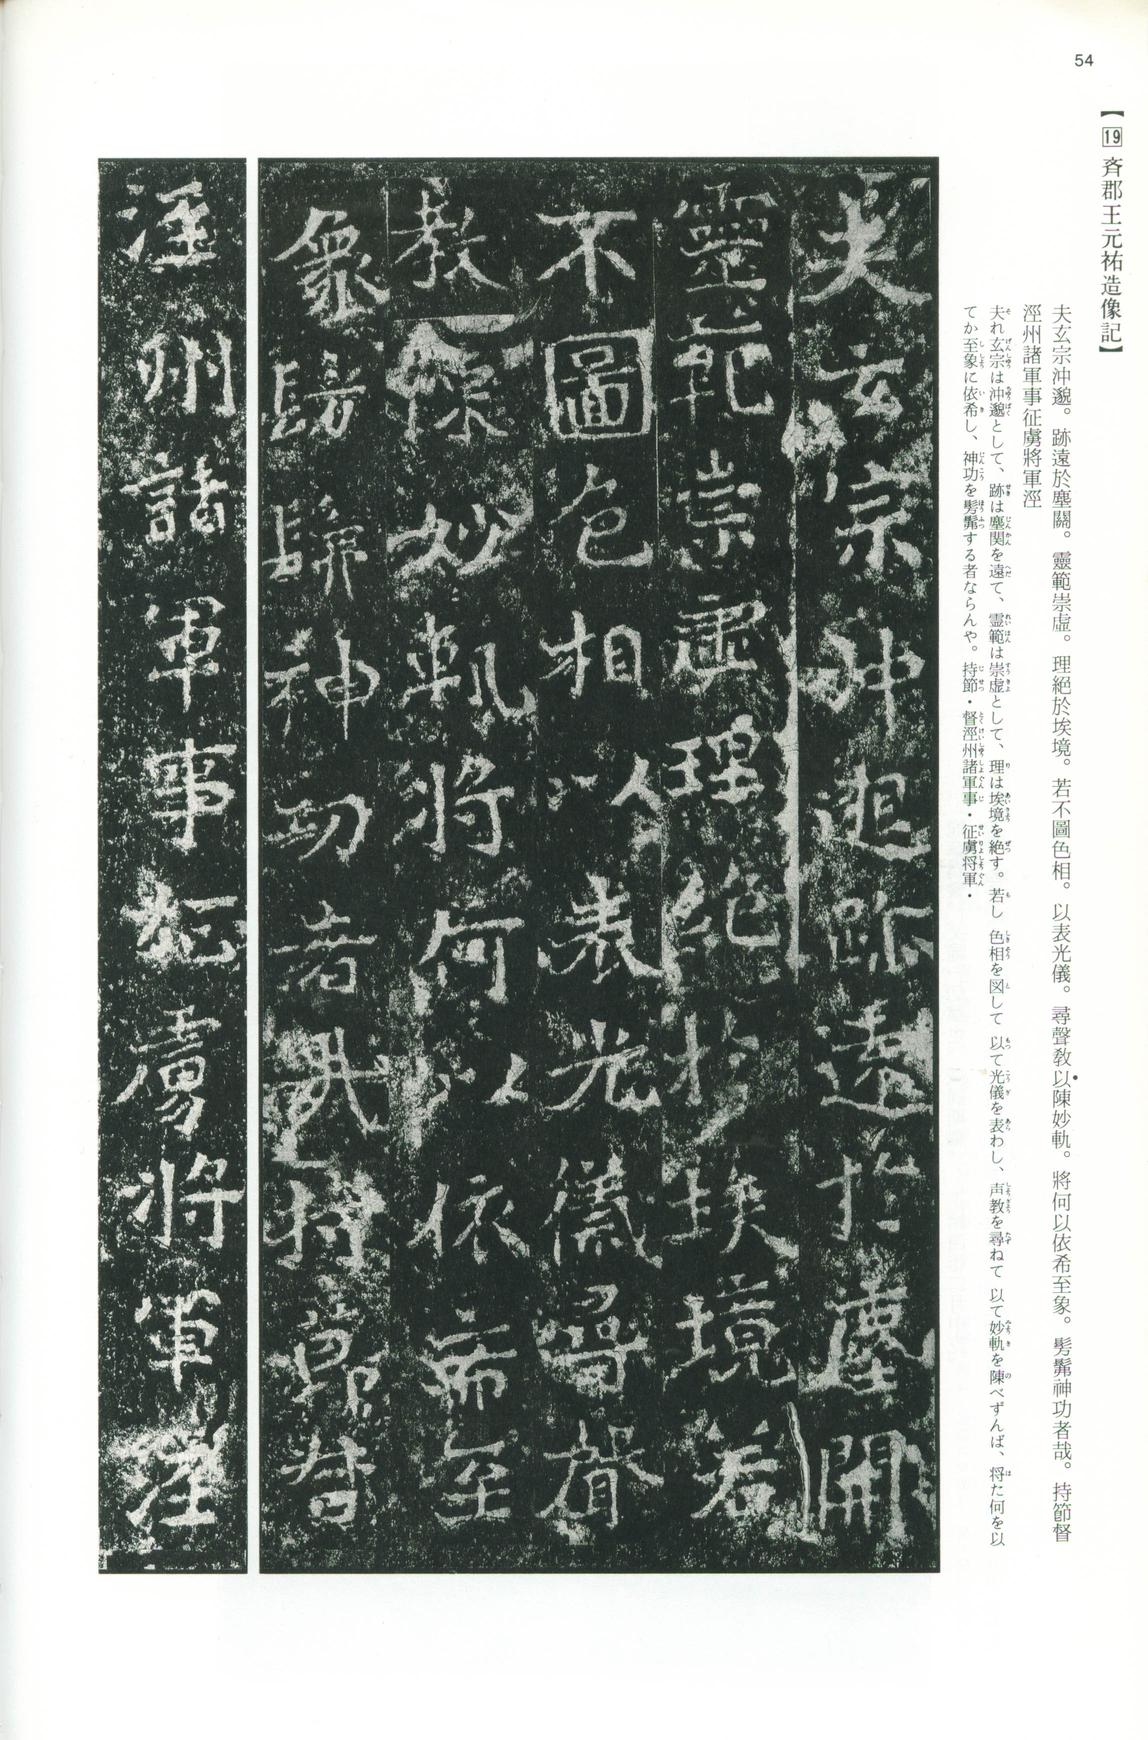 54
【19 斉郡王元祐造像記】
夫玄宗沖邈。跡遠於塵關。靈範崇虛。理絕於埃境。若不圖色相。以表光儀。尋聲敎以陳妙軌。將何以依希至象。髣髴神功者哉。持節督
涇州諸軍事征虜將軍涇
夫れ玄宗は沖邈として、跡は塵関を遠て、霊範は崇虚として、理は埃境を絶す。若し 色相を図して 以て光儀を表わし、声教を尋ねて 以て妙軌を陳べずんば、将た何を以
てか至象に依希し、神功を髣髴する者ならんや。持節・督涇州諸軍事・征虜将軍・
夫玄宗沖邈跡遠於塵開
靈範崇虛理絕於埃境若
不圖色相以表光儀尋聲
教陳妙軌將何以依希至
象髣髴神功者哉持節督
涇州諸軍事征虜將軍涇